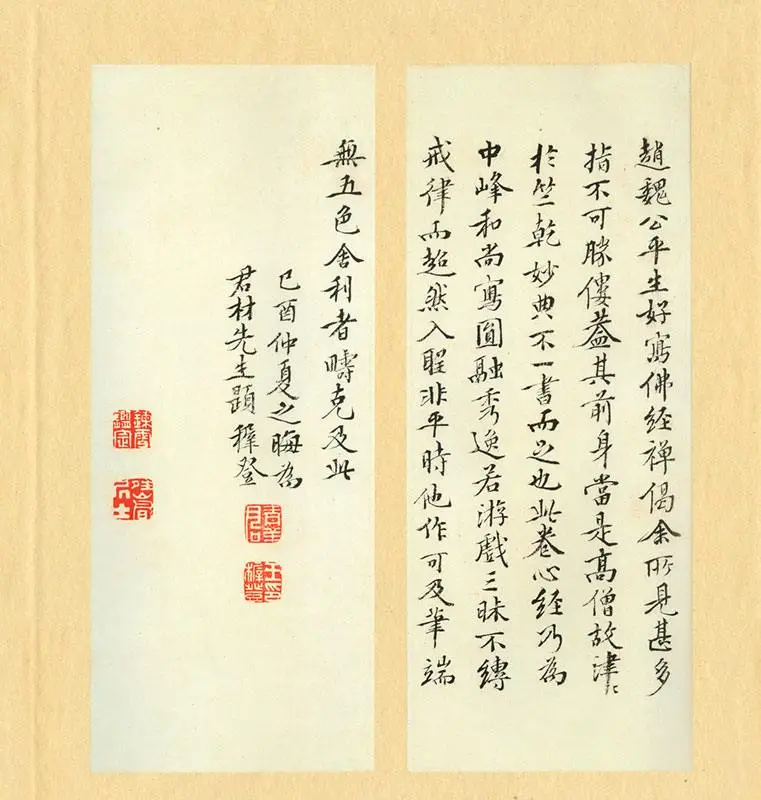 趙魏公平生好寫佛經禅偈余所見甚多
指不可勝僂蓋其前身當是高僧故津々
於竺乾妙典不一書而足也此卷心經乃為
中峰和尚寫圓融秀逸若游戲三昧不縛
戒律而超然入聖非平時他作可及筆端
無五色舍利者疇克及此
己酉仲夏之晦為
君材先生題穉登